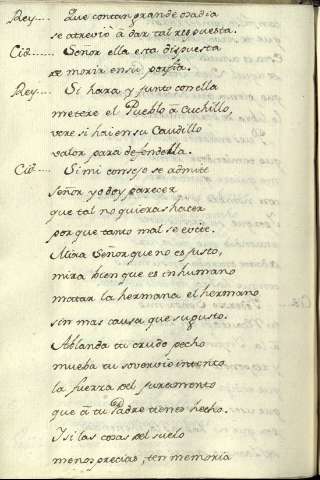 Rey.... Que con tan grande osadia
se atrevió à dar tal respuesta.
Cid...... Señor ella esta dispuesta
de morir en su porfia.
Rey.... Si hara y junto con ella
metere el Pueblo à Cuchillo,
vere si hai en su Caudillo
valor para defenderla.
Cid.... Si mi consejo se admite
Señor yo doy parecer
que tal no quieras hacer
por que tanto mal se evite.
Mira Señor que no es justo,
mira bien que es inhumano
matar la hermana el hermano
sin mas causa que su gusto.
Ablanda tu crudo pecho
mueba tu sovervio intento
la fuerza del juramento
que à tu Padre tienes hecho.
Y si las cosas del suelo
menos precias, ten memoria